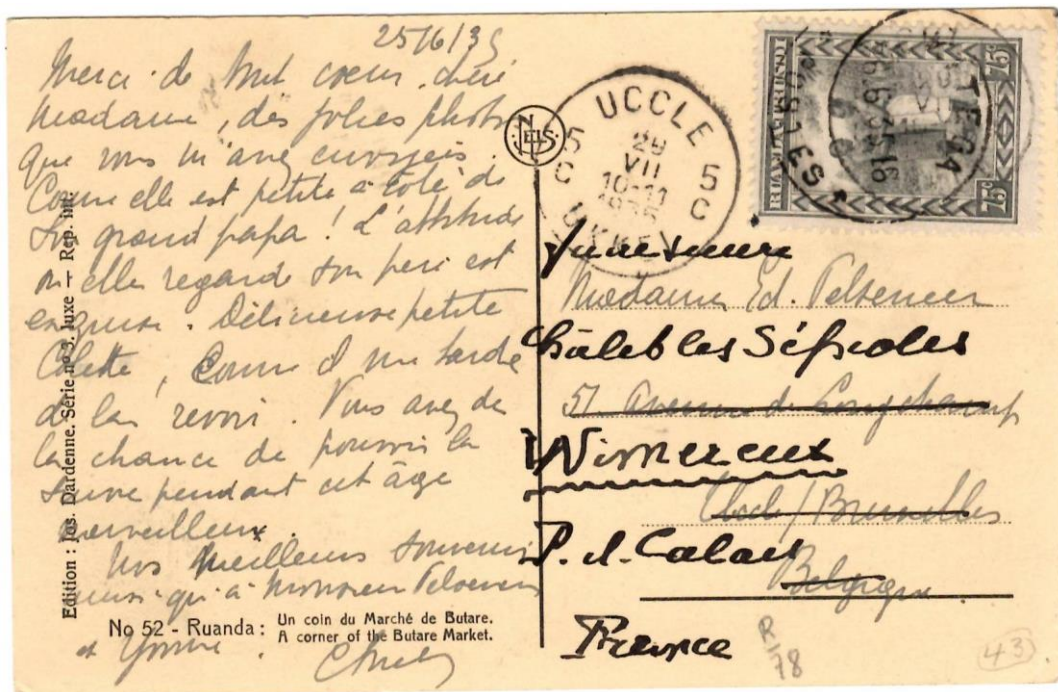 25/6/35
Merci de tout coeur chère
Madame, des jolies photos
que vous m'avez envoyées.
Comme elle est petite à côté de
son grand papa ! L'attitude
où elle regarde son père est
exquise. Délicieuse petite
Colette, comme il me tarde
de la revoir. Vous avez de
la chance de pouvoir la
suivre pendant cet âge
merveilleux.
Nos meilleurs souvenirs
ainsi qu'à Monsieur Pelseneer
et Yvonne.
Edition : Jos. Dardenne. Série nº 3. luxe — Rep. int.
No 52 - Ruanda : Un coin du Marché de Butare.
A corner of the Butare Market.
NELS
UCCLE 5 C
29
VII
10-11
1935
UKKEL 5 C
RUANDA-URUNDI
75c
75c
Madame Ed. Pelseneer
Châlet les
51 Avenue de Longchamp
Wimereux
Uccle / Bruxelles
P. d. Calais
Belgique
France
R
78
43